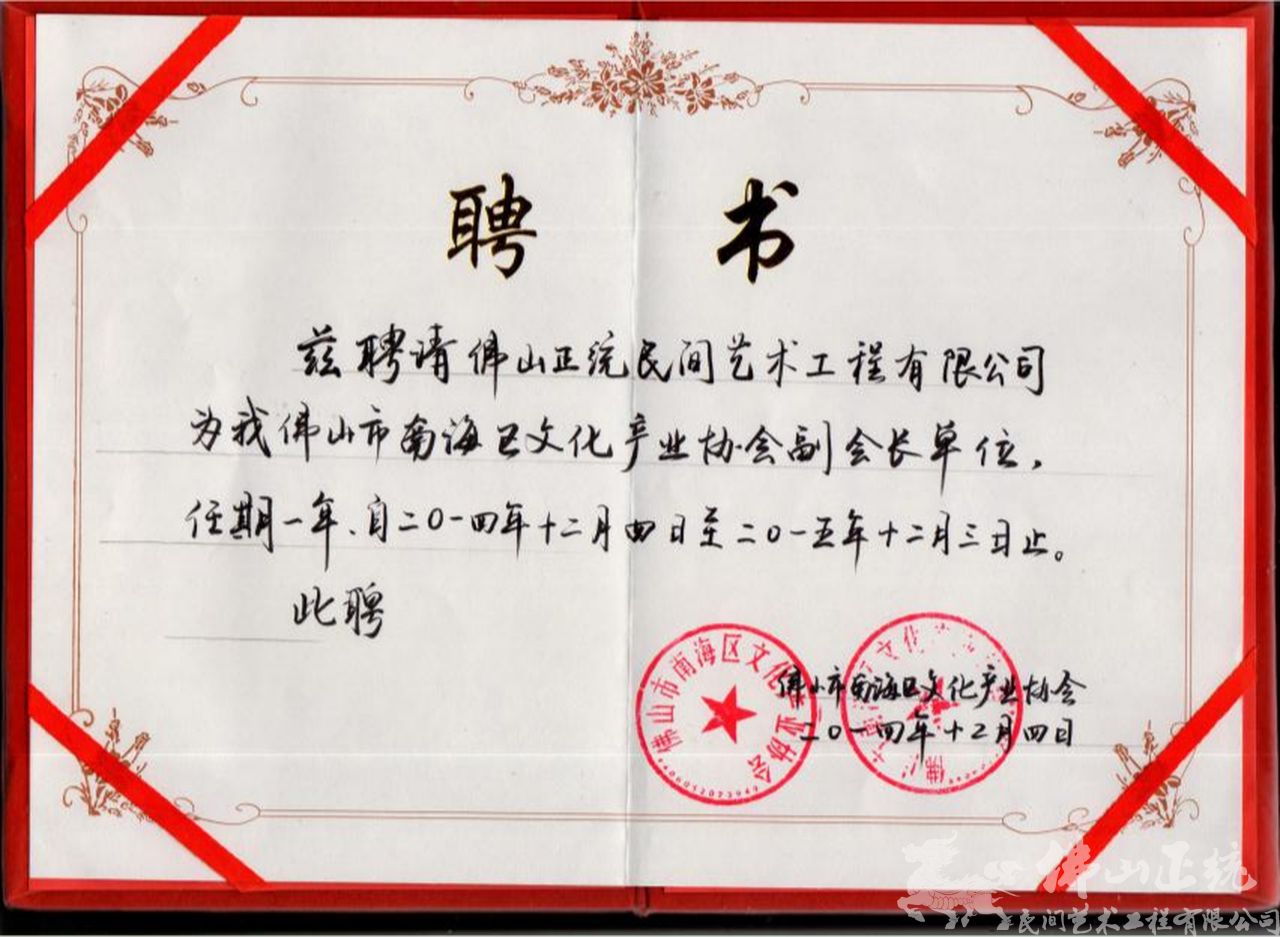 聘 书
兹聘请佛山正统民间艺术工程有限公司
为我佛山市南海区文化产业协会副会长单位，
任期一年、自二〇一四年十二月四日至二〇一五年十二月三日止。
此聘
佛山市南海区文化产业协会
佛山市南海区文化产业协会
二〇一四年十二月四日
佛山正统
民间艺术工程有限公司